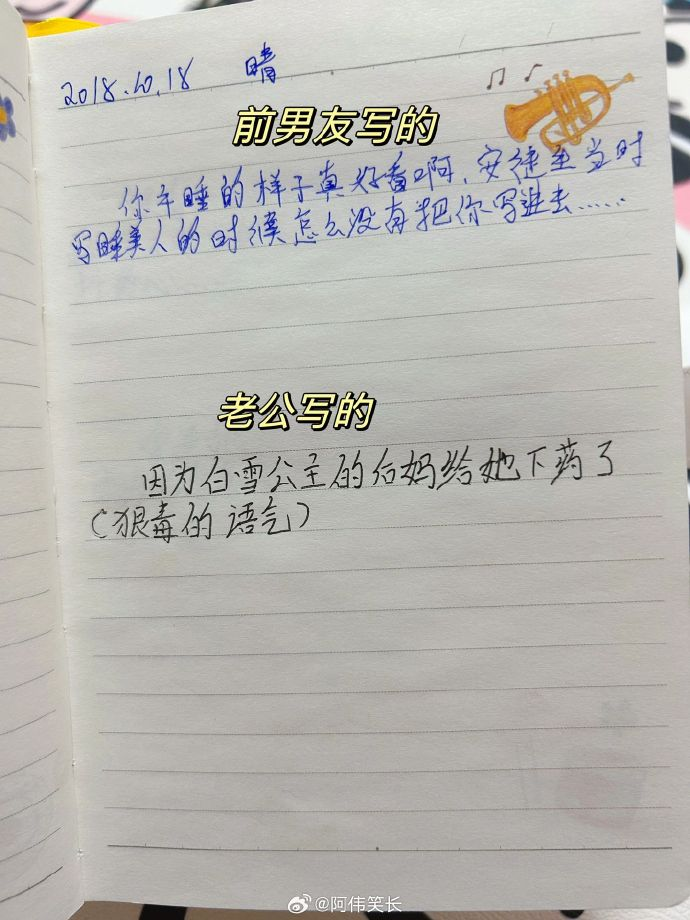 2018.10.18 晴
前男友写的
你午睡的样子真好看啊，安徒生当时
写睡美人的时候怎么没有把你写进去……
老公写的
因为白雪公主的后妈给她下药了
（狠毒的语气）
@阿伟笑长